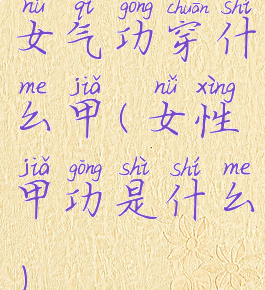 nǚ qì gōng chuān shí
女气功穿什
me jiǎ nǚ xìng
么甲(女性
jiǎ gōng shì shí me
甲功是什么
)